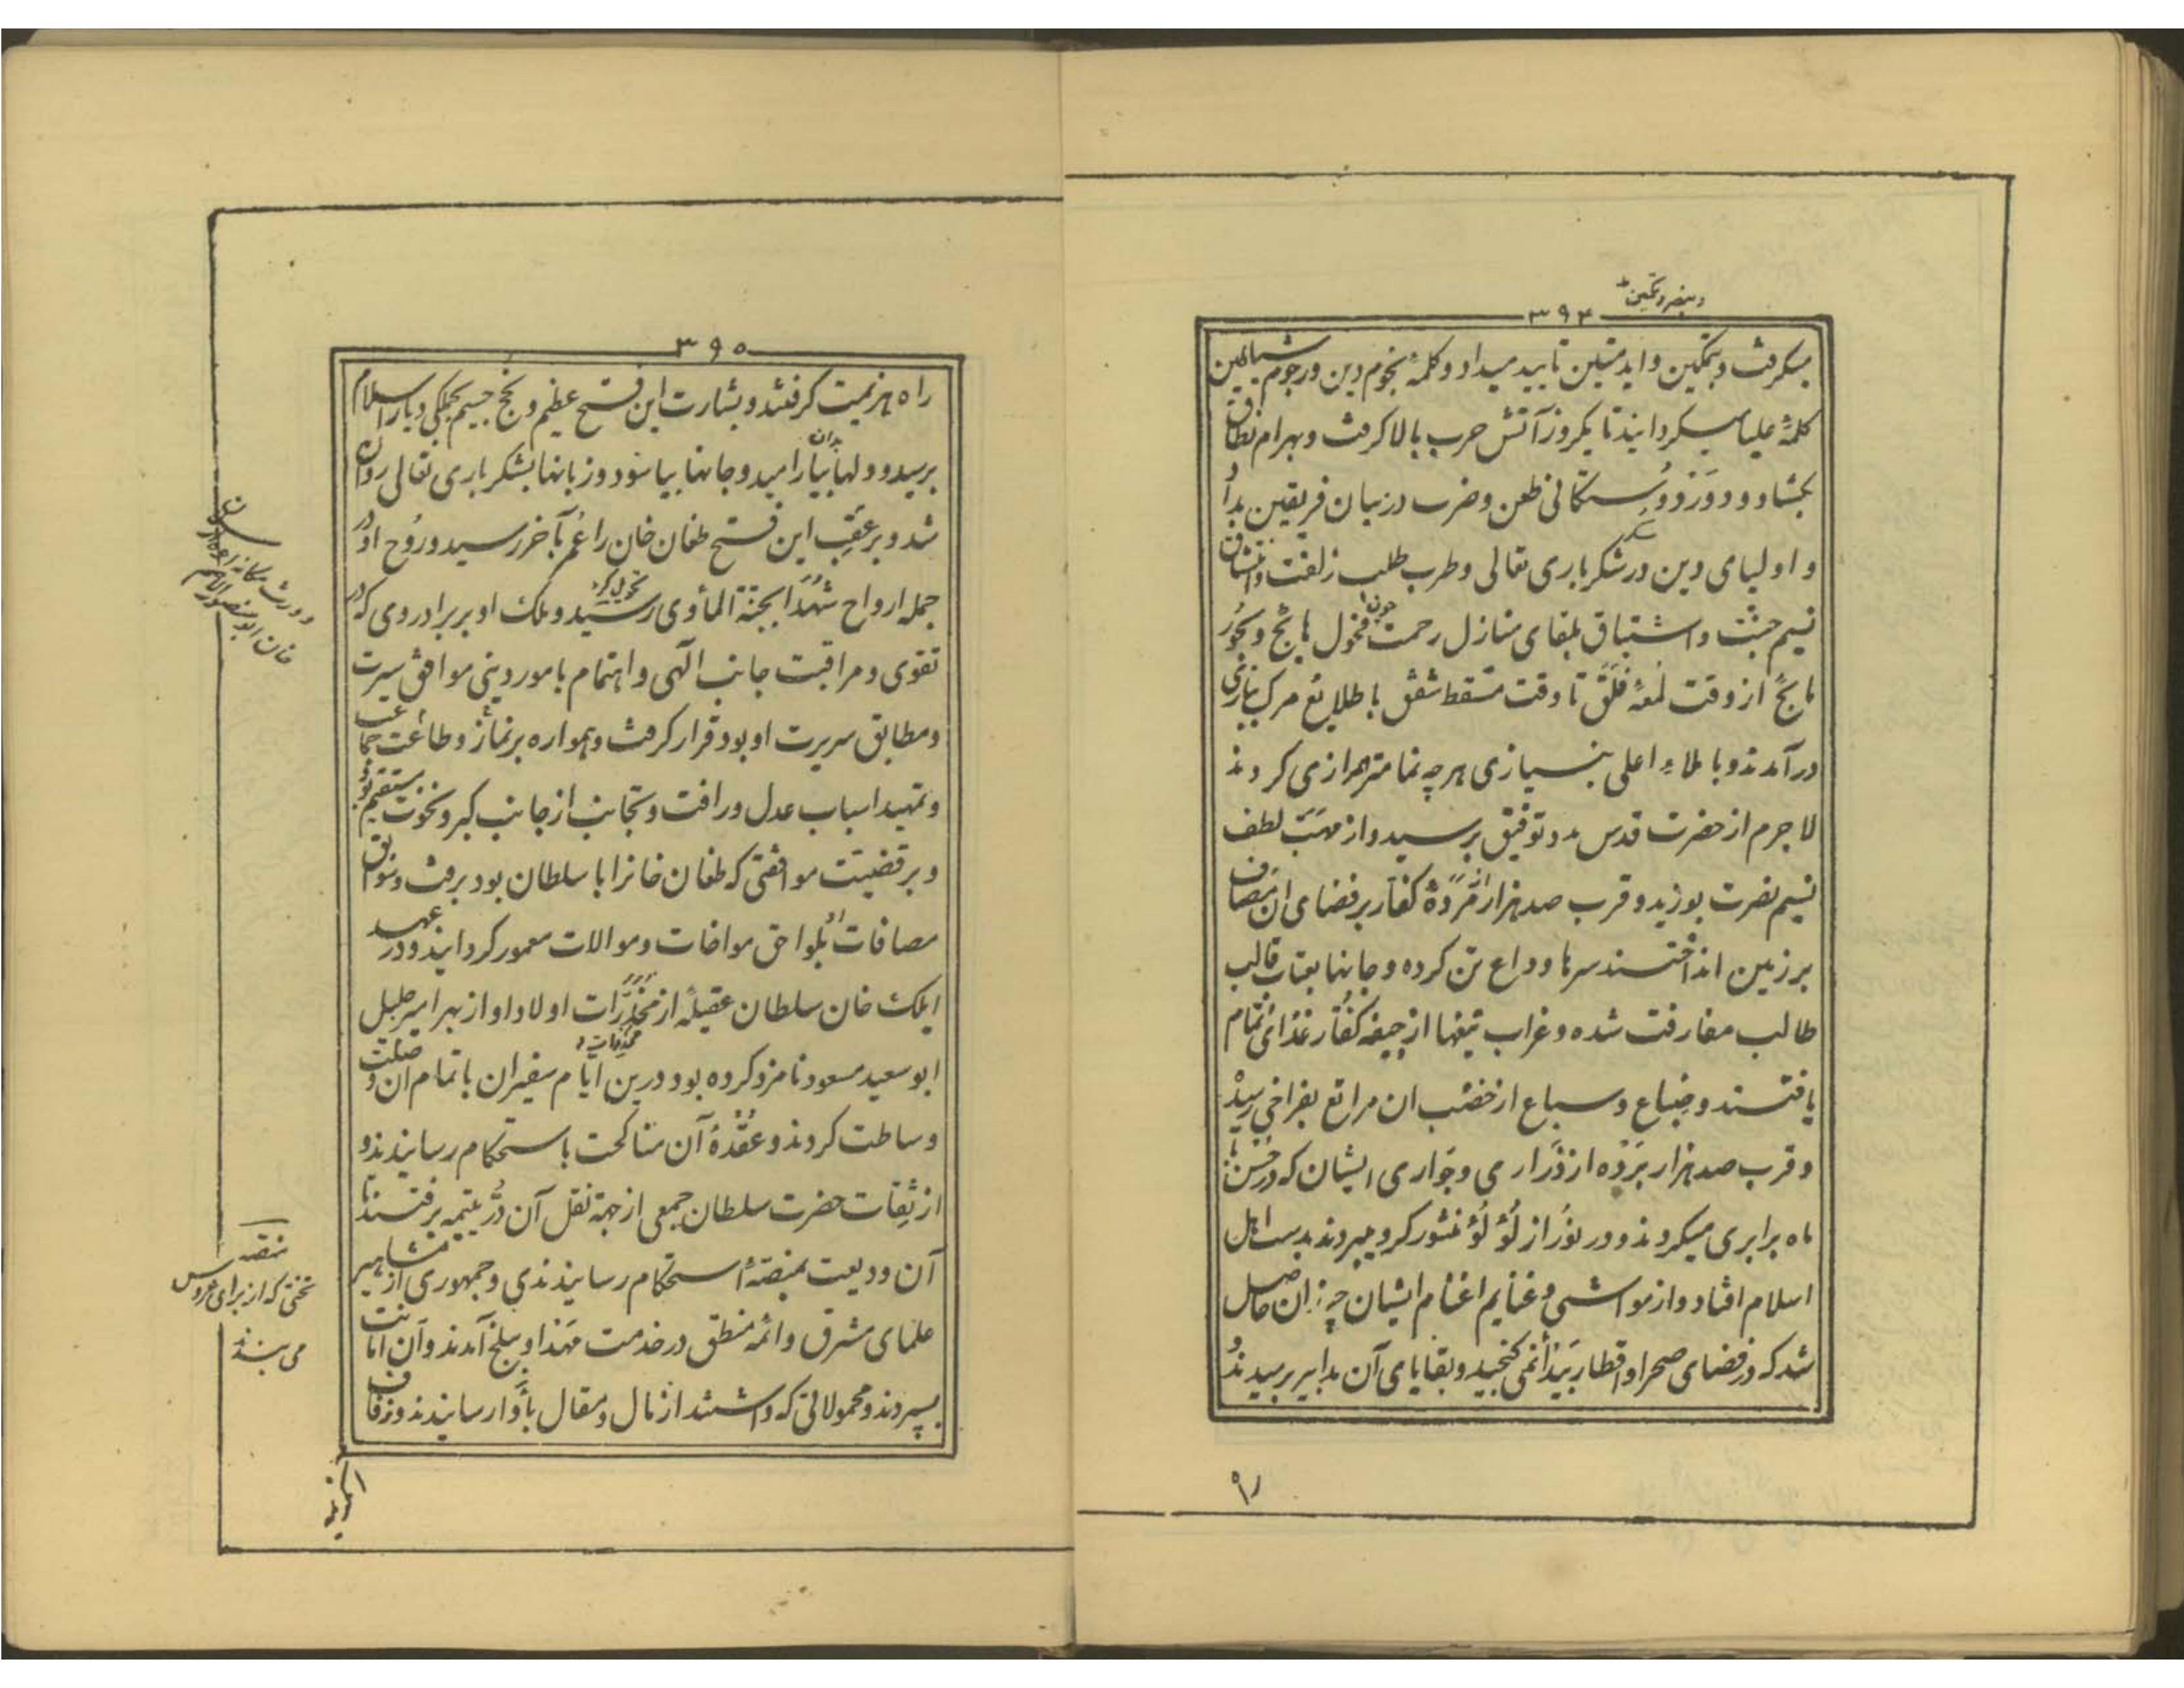 وبنصر و تمکین
۳۹۴
میکرفت و بتمکین و اید متین تایید میداد و کلمهٔ نجوم دین و رجوم شیاطین
کلمهٔ علیا میکردانید تا یکروز آتش حرب بالا کرفت و بهرام نطاق
بکشاد و دور دوستکانی طعن و ضرب در میان فریقین بدا
و اولیای دین در شکر باری تعالی و طرب طلب زلفت و انتشاق
نسیم جنّت و اشتیاق بلقای منازل رحمت چون فحول هایج و بحور
مایج از وقت لمعهٔ فلق تا وقت مسقط شفق با طلایع مرک ببازی
درآمدند و با ملاء اعلی بنسیازی هر چه تمامتر همراز می کردند
لاجرم از حضرت قدس مدد توفیق برسید و از مهبّ لطف
نسیم نصرت بوزید و قرب صد هزار از مردهٔ کفار بر فضای ان مصاف
بر زمین انداختند سرها وداع تن کرده و جانها بعتاب قالب
طالب مفارقت شده و غراب تیغها از جیفهٔ کفّار غذای تمام
یافتند و ضباع و سباع از خصب ان مراتع بفراخی رسید
و قرب صد هزار برده از ذراری و جواری ایشان که در حسن با
ماه برابری میکردند و در نور از لؤلؤ منثور کرو میبردند بدست اهل
اسلام افتاد و از مواشی و غنایم اغنام ایشان چیزان حاصل
شد که در فضای صحرا و اقطار بیدا نمی کنجید و بقایای آن مدابیر برمیدند و
راه
۳۹۵
راه هزیمت کرفتند و بشارت این فتح عظیم و نجح جسیم بجملکی دیار اسلام
برسید و دلها بدان بیارامید و جانها بیاسود و زبانها بشکر باری تعالی روان
شد و بر عقب این فتح طغان خان را عمر بآخر رسید و روح او در
جمله ارواح شهدا بجنّة المأوی رسید و ملک او بر برادر وی که در
تحویل کرد
تقوی و مراقبت جانب الهی و اهتمام بامور دینی موافق سیرت
و مطابق سریرت او بود قرار کرفت و همواره بر نماز و طاعت جماعت
و تمهید اسباب عدل و رافت و تجانب از جانب کبر و نخوت مستقیم بود
و بر قضیّت موافقتی که طغان خانرا با سلطان بود برفت و سوابق
مصافات او بلواحق مواخات و موالات معمور کردانید و در عهد
ایلک خان سلطان عقیلهٔ از مخدّرات اولاد او از بهر امیر جلیل
ابو سعید مسعود نامزد کرده بود درین ایّام سفیران باتمام ان وصلت
وساطت کردند و عقدهٔ آن مناکحت باستحکام رسانیدند و
از ثقات حضرت سلطان جمعی از جهة نقل آن درّ یتیمه برفتند تا
آن ودیعت بمنصّهٔ استحکام رسانیدندی و جمهوری از مشاهیر
علمای مشرق و ائمه منطق در خدمت مهد او ببلخ آمدند و آن امانت
بسپردند و محمولاتی که داشتند از مال و مقال بأدا رسانیدند و زفاف
منصّه
تختی که از برای عروس
می بندند